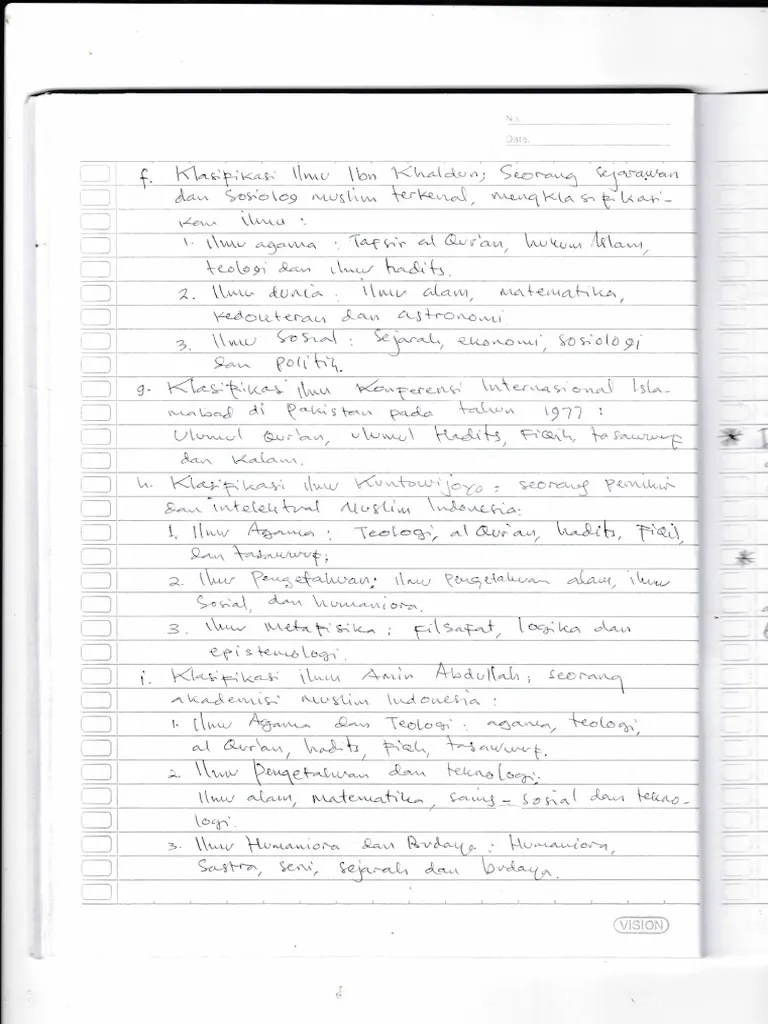 No.
Date.
f. Klasifikasi Ilmu Ibn Khaldun; Seorang sejarawan
dan Sosiolog Muslim terkenal, mengklasifikasi-
kan ilmu :
1. Ilmu agama : Tafsir al Qur'an, hukum Islam,
teologi dan ilmu hadits.
2. Ilmu dunia : ilmu alam, matematika,
kedokteran dan astronomi
3. Ilmu Sosial : Sejarah, ekonomi, sosiologi
dan politik.
g. Klasifikasi ilmu Konferensi Internasional Isla-
mabad di Pakistan pada tahun 1977 :
Ulumul Qur'an, ulumul Hadits, Fiqih, tasawwuf
dan Kalam.
h. Klasifikasi ilmu Kuntowijoyo : seorang pemikir
dan intelektual Muslim Indonesia:
1. Ilmu Agama : Teologi, al Qur'an, hadits, Fiqih,
dan tasawwuf;
2. Ilmu Pengetahuan; ilmu pengetahuan alam, ilmu
Sosial, dan humaniora.
3. Ilmu Metafisika : Filsafat, logika dan
epistemologi.
i. Klasifikasi ilmu Amin Abdullah; seorang
akademisi Muslim Indonesia :
1. Ilmu Agama dan Teologi : agama, teologi,
al Qur'an, hadits, fiqh, tasawwuf.
2. Ilmu pengetahuan dan teknologi;
Ilmu alam, matematika, sains - sosial dan tekno-
logi.
3. Ilmu Humaniora dan Budaya : Humaniora,
Sastra, seni, sejarah dan budaya.
VISION